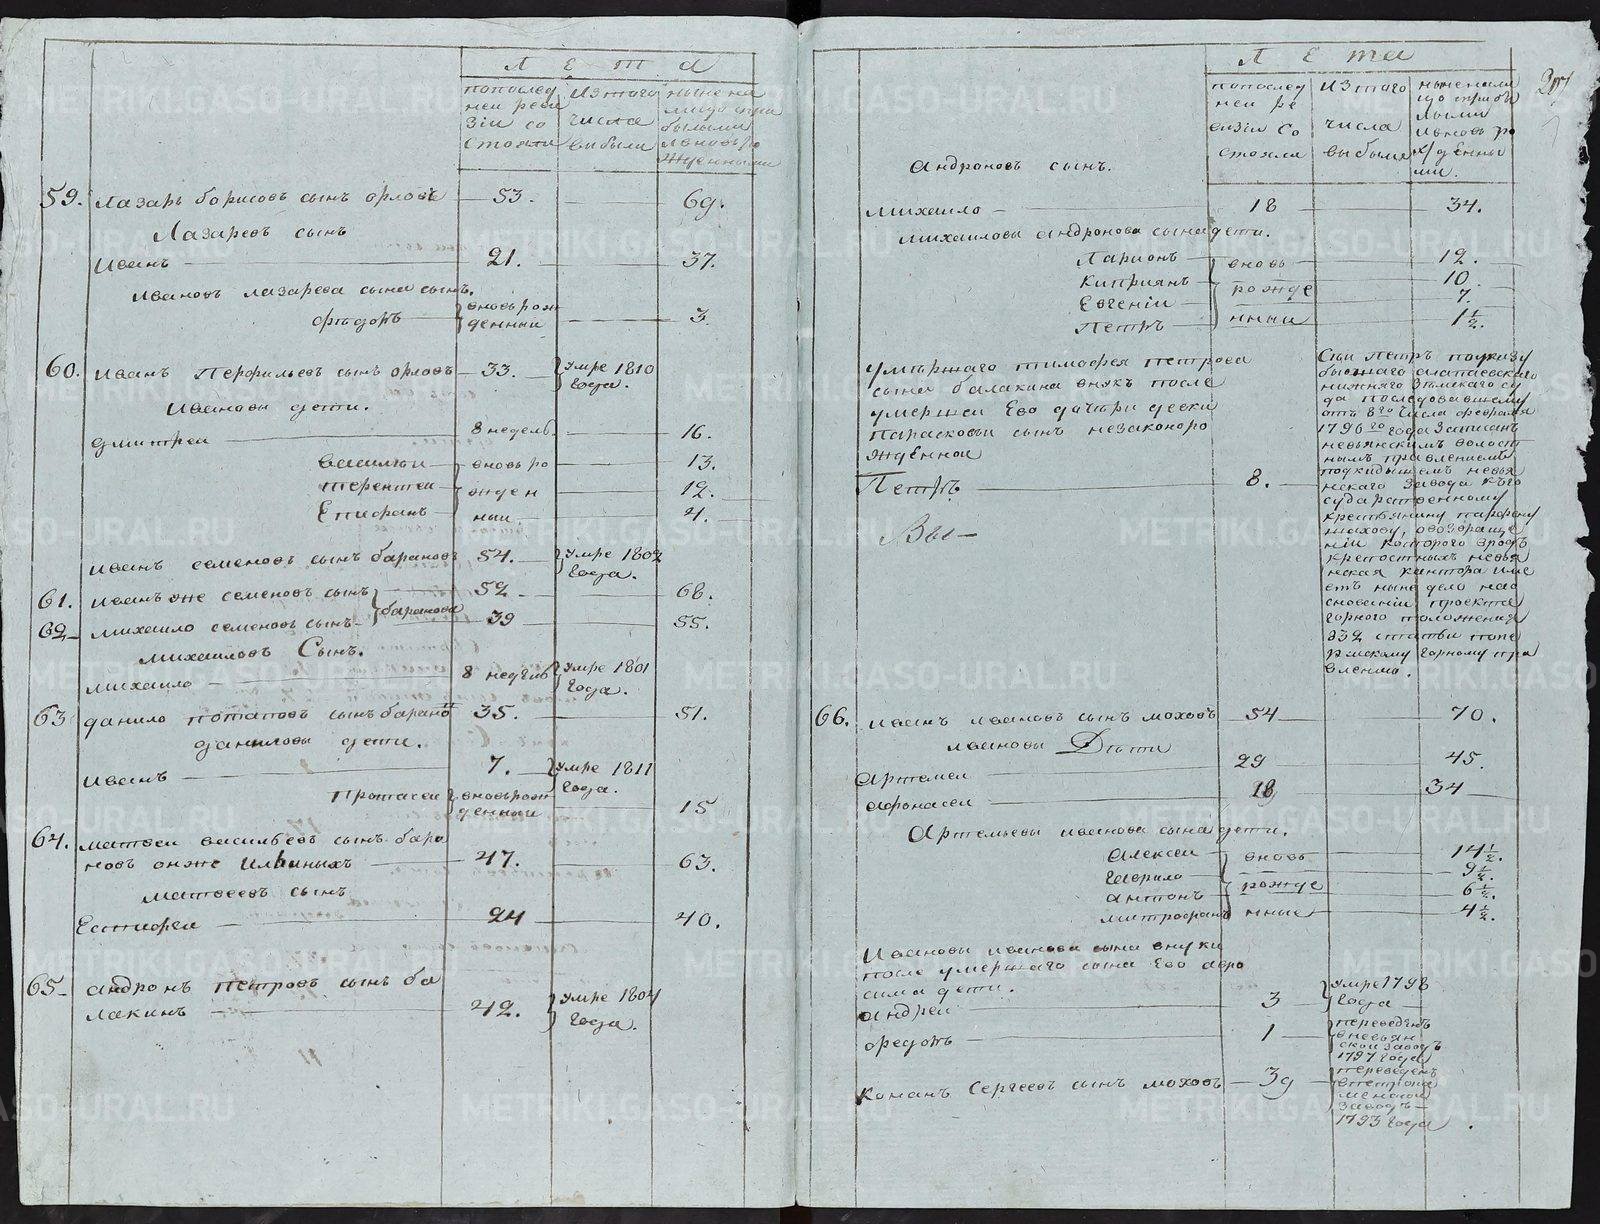 Лета
попослед
ней реви
зіи со
стояли
изтого
числа
выбыли
ныне на
лицо при
былыми
ивновь ро
жденными
59. Лазарь борисовъ сынъ орловъ 53. 69.
Лазаревъ сынъ
Иванъ 21. 37.
Ивановъ лазарева сына сынъ.
федотъ вновь рож
денныи 3.
60. Иванъ Перфильевъ сынъ орловъ 33. Умре 1810
Года.
Ивановы дети.
дмитреи 8 недель 16.
василеи вновь ро 13.
терентеи жден 12.
Епифанъ ныи 4.
иванъ семеновъ сынъ барановъ 54. Умре 1802
Года.
61. иванъ же семеновъ сынъ 52 68.
баранова
62 михаило семеновъ сынъ 39 55.
михаиловъ Сынъ.
михаило 8 недель Умре 1801
Года.
63 данило потаповъ сынъ барано 35. 51.
даниловы дети.
иванъ 7. Умре 1811
Года.
Протасеи вновь рож
денныи 15
64. матвеи васильевъ сынъ бара
новъ онже ильиныхъ 47. 63.
матвеевъ сынъ
Естифеи 24 40.
65. андронъ петровъ сынъ ба
лакинъ 42. Умре 1804
Года.
Лета
попослед
ней ре
визіи со
стояли
изтого
числа
выбыли
ныне нали
цо прибы
лыми
ивновь ро
жденны
ми.
андроновъ сынъ.
михаило 18 34.
михаиловы андронова сына дети.
Ларионъ вновь 12.
Киприянъ рожде 10.
Евгеніи 7.
Петръ нныи 1½.
умершаго тимофея петрова
сына балакина внукъ после
умершеи Его дочери девки
парасковьи сынъ незаконоро
жденнои
Петръ 8.
Сеи Петръ поуказу
бывшаго алапаевскаго
нижняго Земскаго су
да последовавшему
отъ 8го числа февраля
1796го года Записанъ
невьянскимъ волост
нымъ правлениемъ
подкидышемъ невья
нскаго завода къго
сударственному
крестьянину парфену
мохову, овозвраще
ніи которого вродъ
крепостныхъ невья
нская кантора име
етъ ныне дело нао
сновеніи проекта
горного положения
832 статьи попе
рмскому горному пра
влению.
Вы-
66. иванъ ивановъ сынъ моховъ 54 70.
ивановы Дети
Артемеи 29 45.
афонасеи 18 34
Артемьевы иванова сына дети.
алексеи вновь 14½.
гаврило 9½.
антонъ рожде 6½.
митрофанъ нные 4½.
Ивановы иванова сына внуки
после умершаго сына Его авро
сима дети.
андреи 3 Умре 1798
Года
федотъ 1 переведенъ
вневьян
скои заводъ
1797 года
Романъ Сергеевъ сынъ моховъ 39 переведенъ
впетрока
менскои
заводъ
1793 года
METRIKI.GASO-URAL.RU